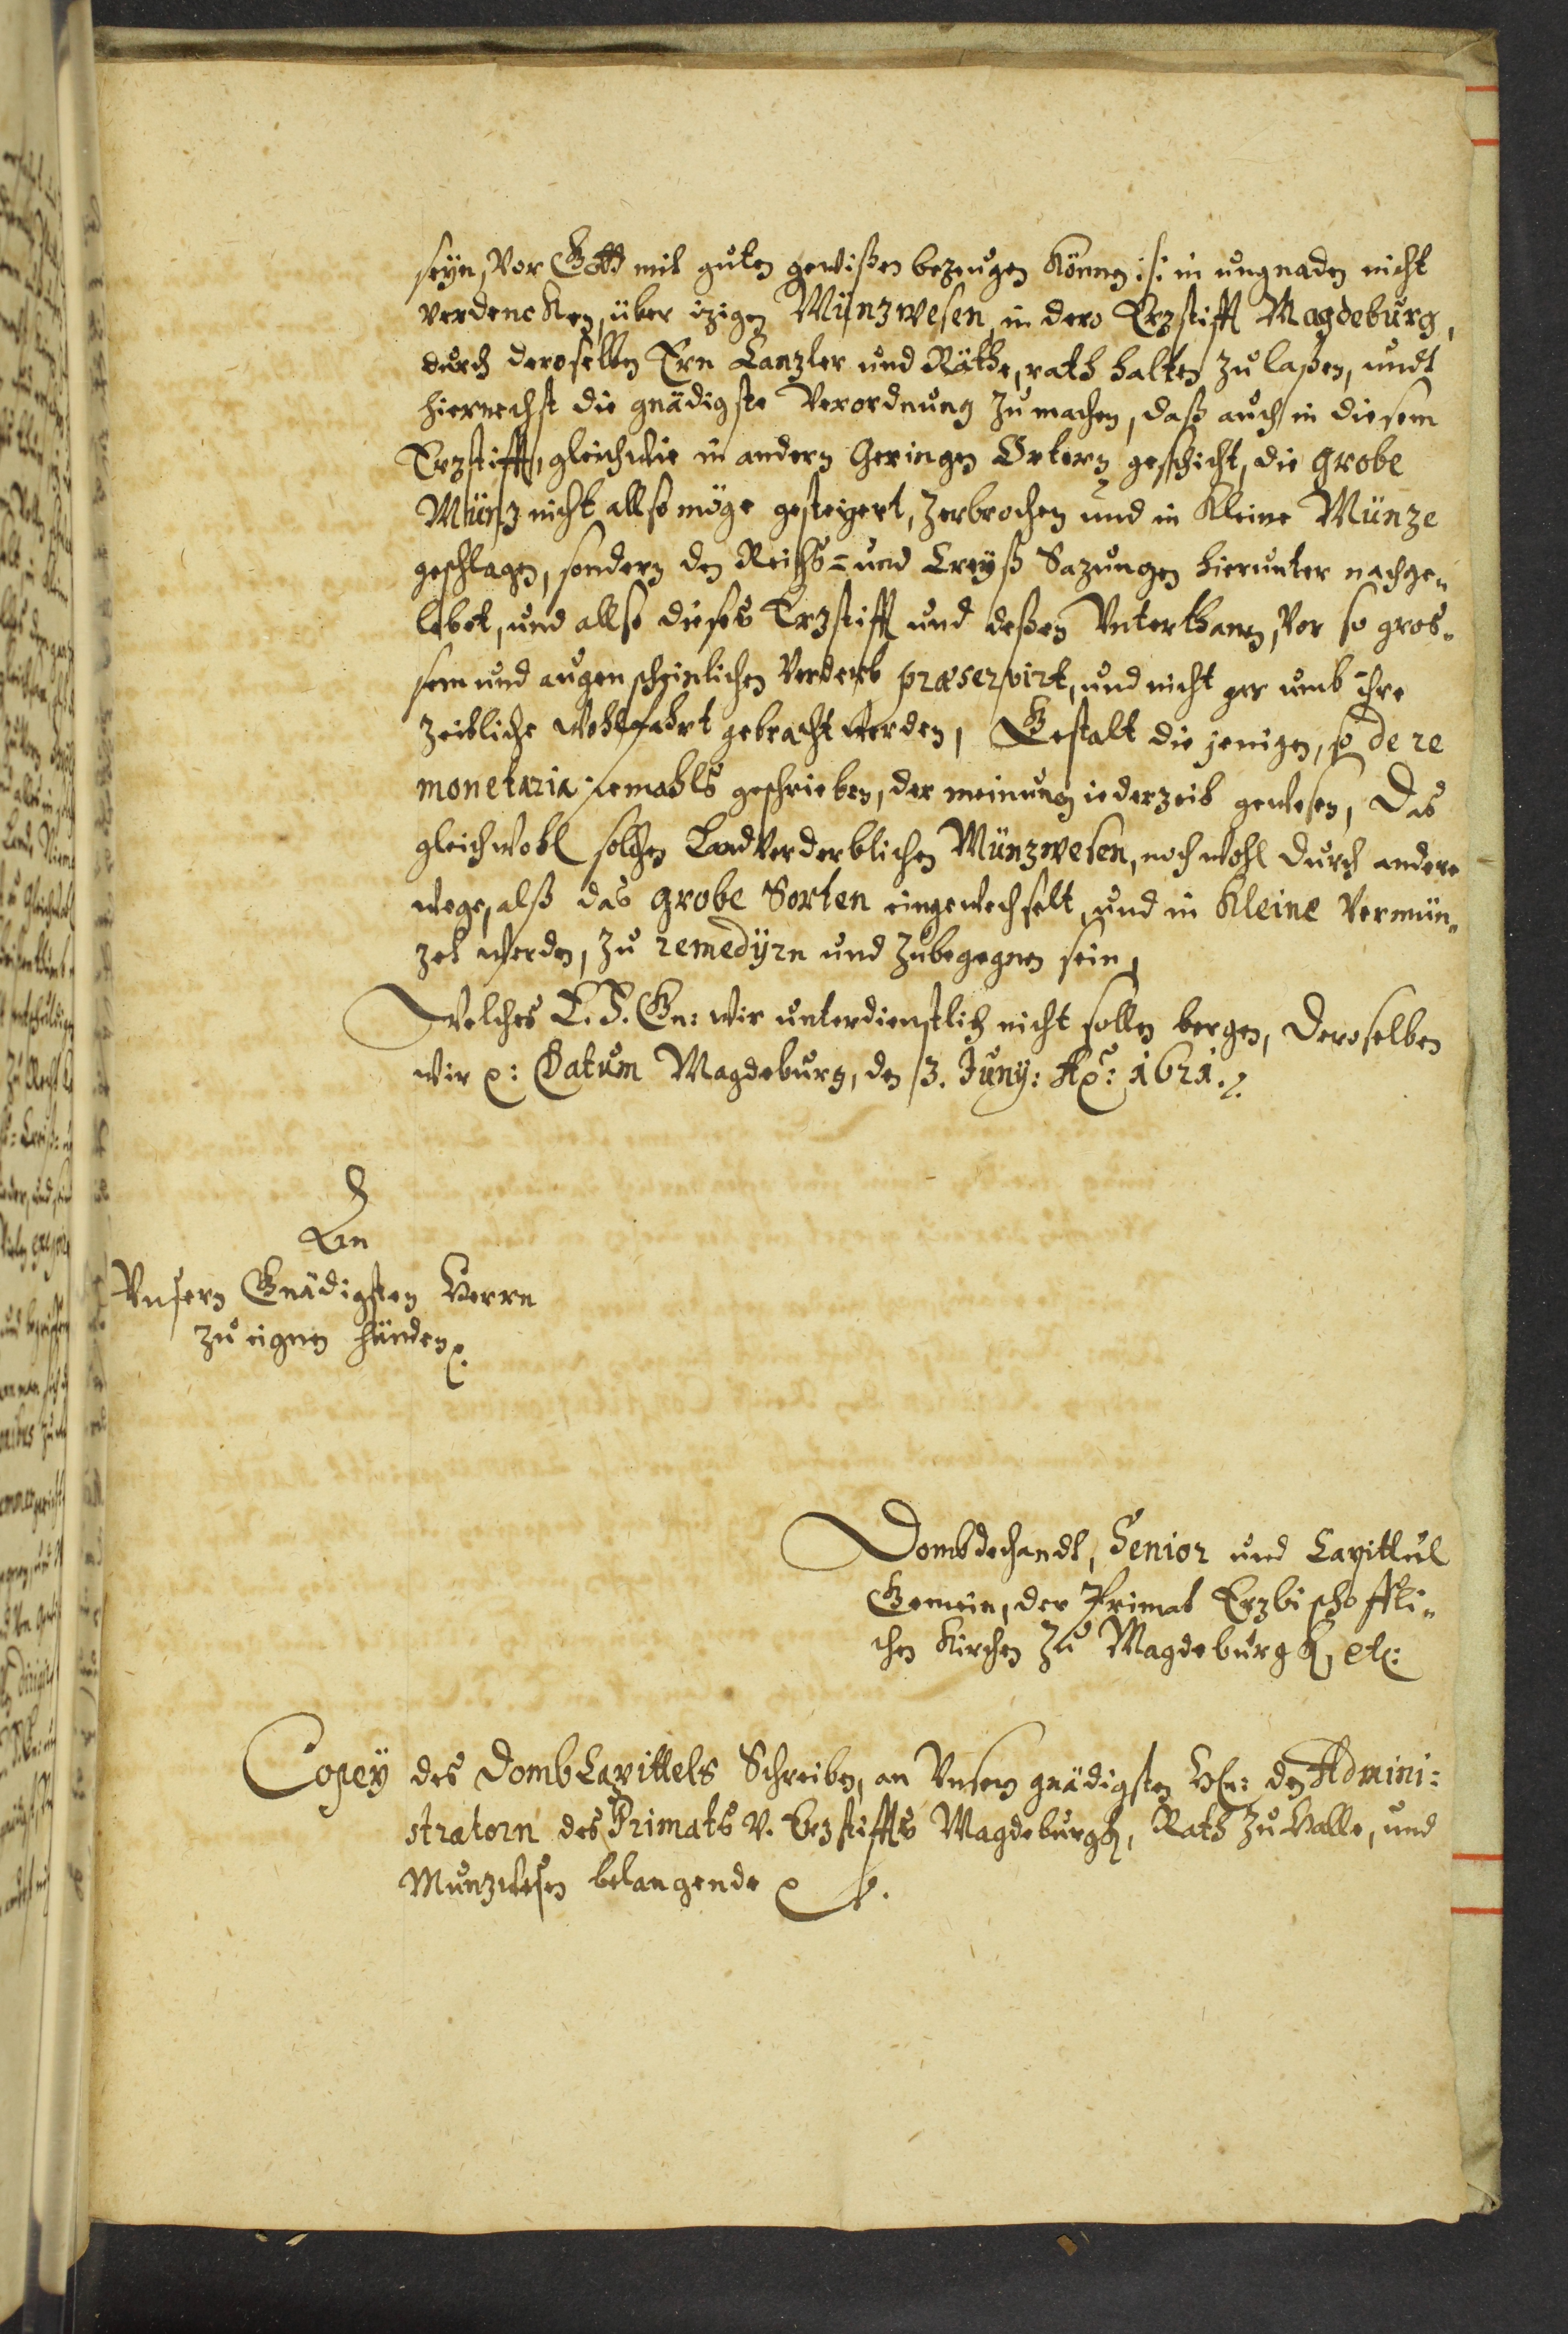 seyn, Vor Gott mit guten gewißen bezeugen können :/: in ungnaden nicht
verdencken, über izigen Münzwesen, in dero Erzstifft Magdeburg,
durch deroselben Ern Canzler und Räthe, rath halten zu laßen, undt
hiernechst die gnädigste Verordnung zu machen, daß auch in diesem
Erzstifft, gleichwie in andern Geringen Ortern geschicht, die grobe
Münz nicht allso möge gesteigert, zerbrochen und in Kleine Münze
geschlagen, sondern den Reichs= und Creyß Sazungen hierunter nachge„
lebet, und allso dieses Erzstifft und deßen Unterthanen, Vor so gros„
sem und augenscheinlichen Verderb præservirt, und nicht gar umb ihre
zeitliche Wohlfahrt gebracht werden, Gestalt die jenigen, so de re
monetaria jemahls geschrieben, der meinung iederzeit gewesen, Das
gleichwohl solchen Landverderblichen Münzwesen, noch wohl durch andere
wege, alß das grobe Sorten eingewechselt, und in Kleine Vermün„
zet werden, zu remedijrn und zubegegnen sein,
Welches E. F. Gn: wir unterdienstlich nicht sollen bergen, Deroselben
wir p: Datum Magdeburg, den 3. Juny: Ao: 1621.
An
Unsern Gnädigsten Herrn
zu eignen händen p.
Dombdechandt, Senior und Capittul
Gemein, der Primat Erzbischoffli„
chen Kirchen zu Magdeburgk, etc:
Copey des DombCapittels Schreiben, an Unsern gnädigsten Hn: den Admini:
stratorn des Primats v. Erzstiffts Magdeburgk, Rath zu Halle, und
Munzwesen belangende p